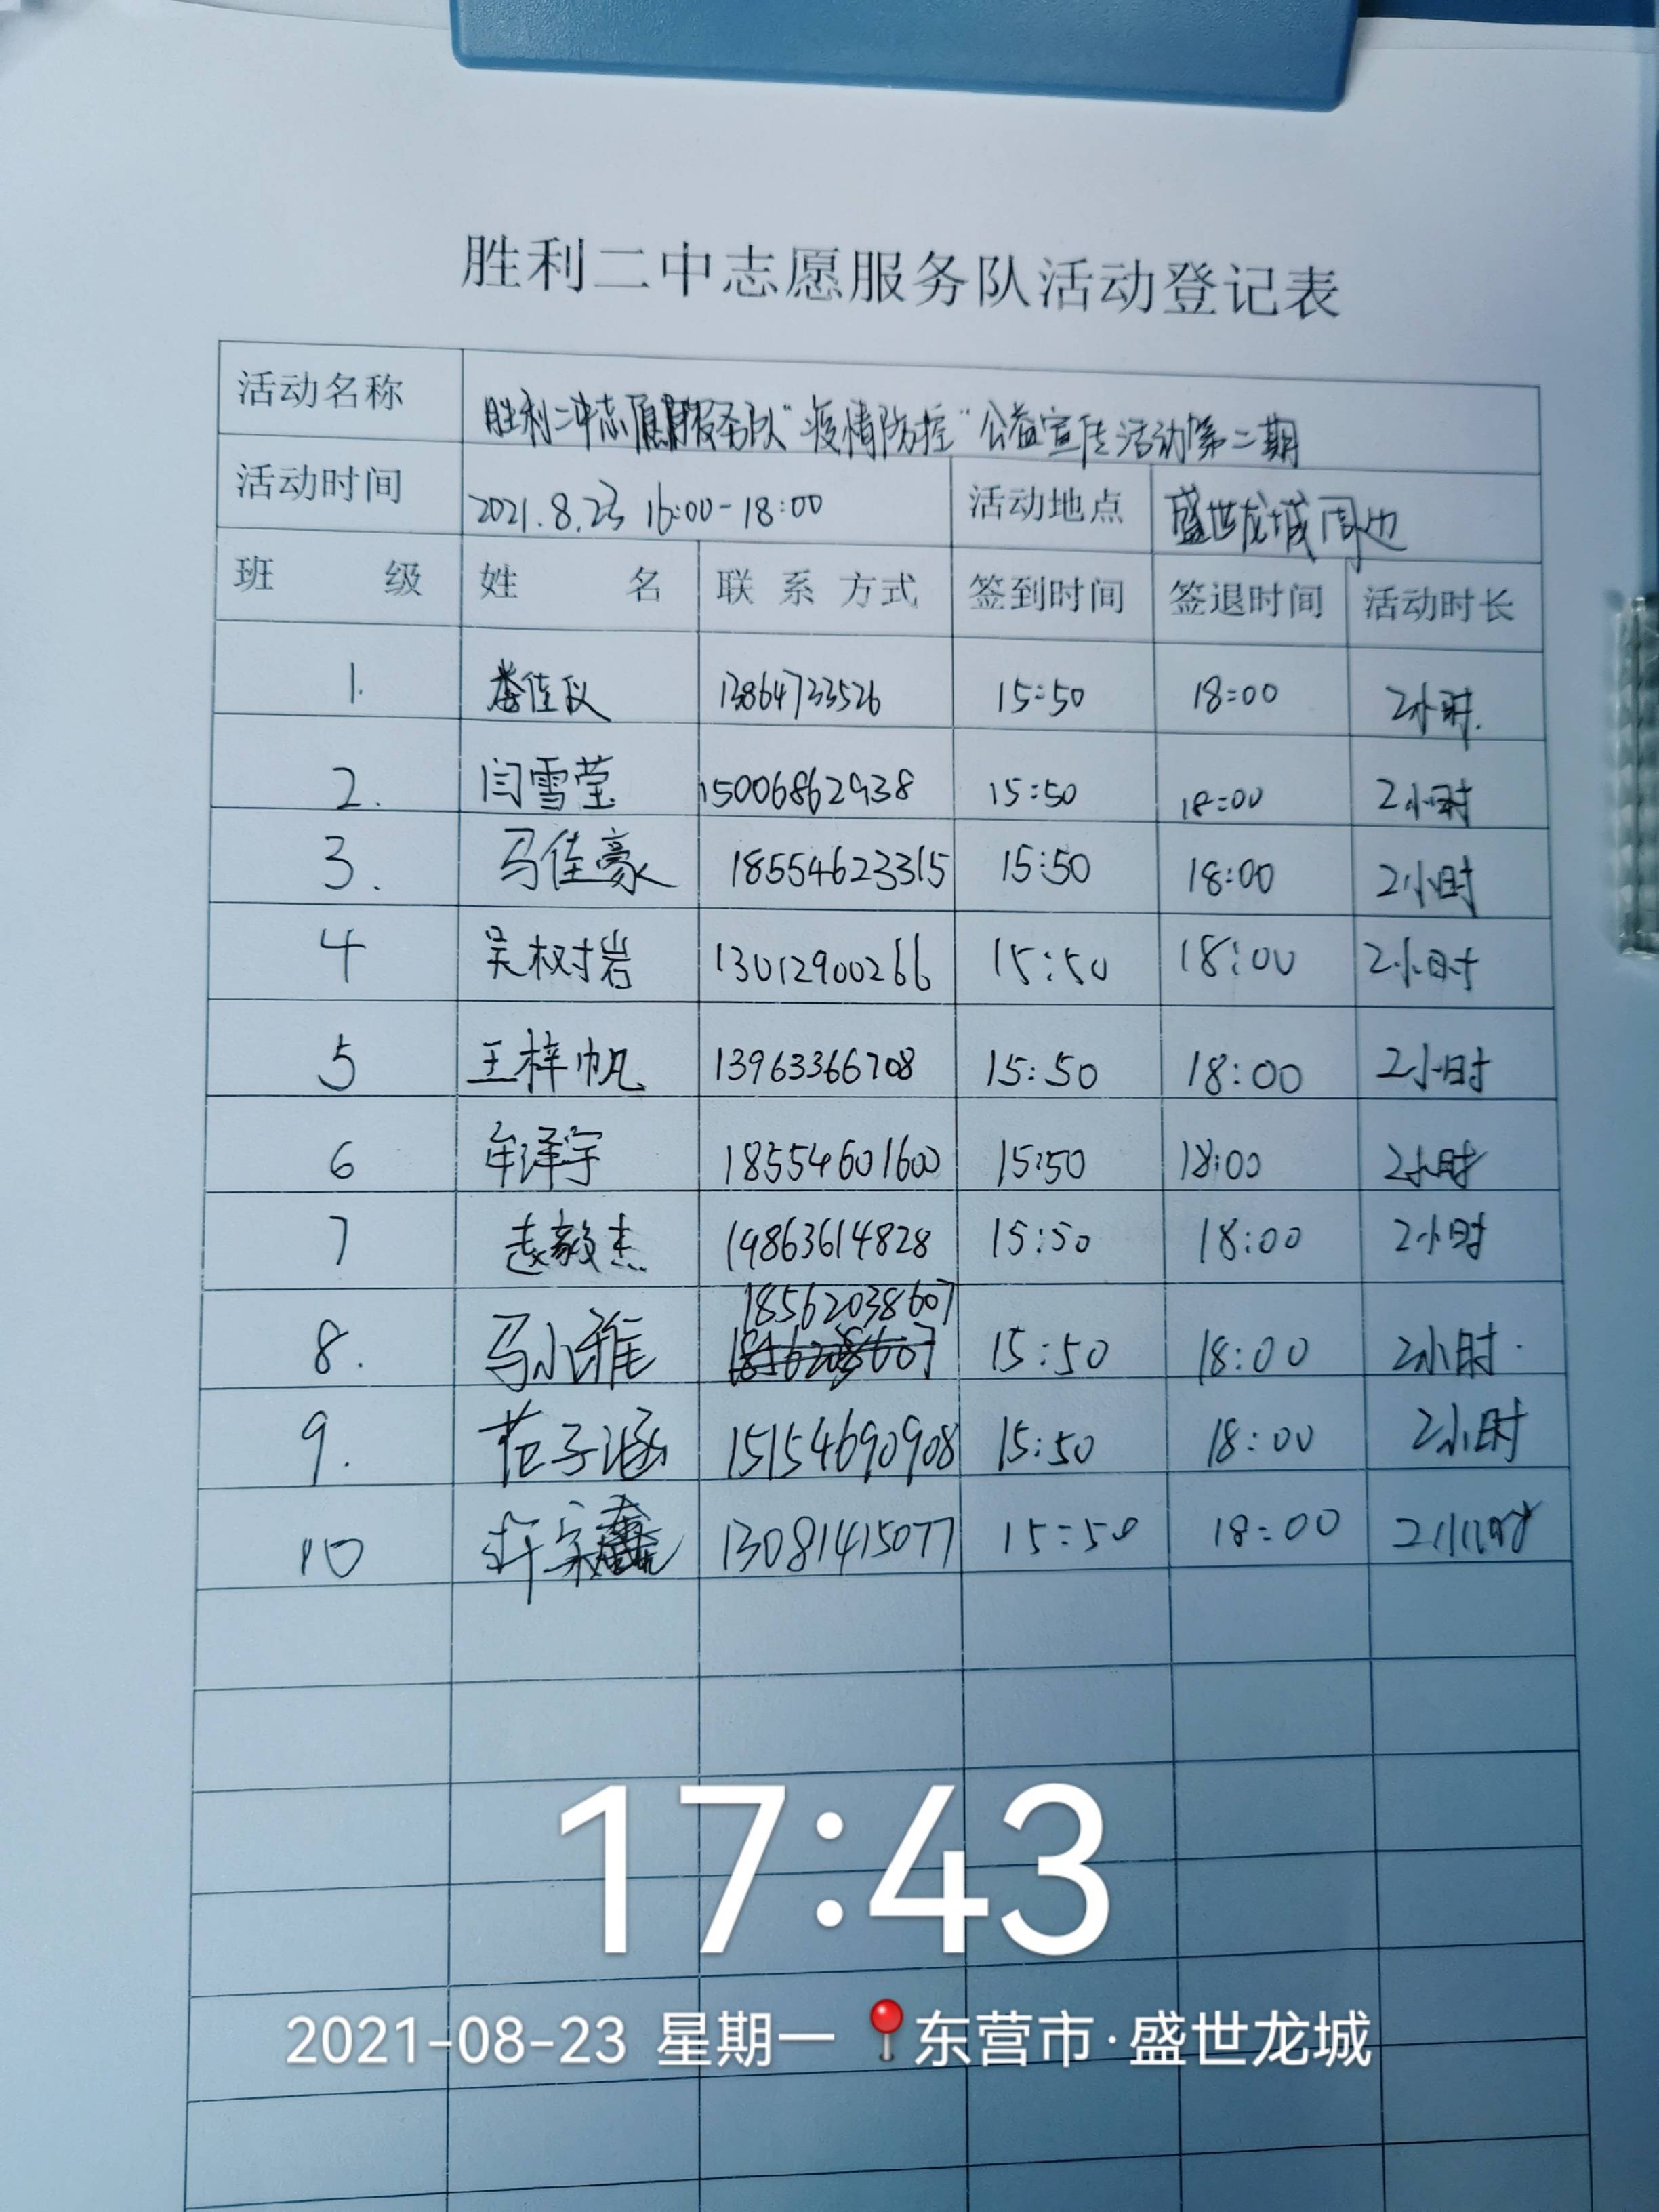 胜利二中志愿服务队活动登记表
活动名称 胜利二中志愿服务队"疫情防控"公益宣传活动第二期
活动时间 2021.8.23 16:00-18:00 活动地点 盛世龙城周边
班 级 姓 名 联系方式 签到时间 签退时间 活动时长
1. 娄佳仪 13864733526 15:50 18:00 2小时.
2. 闫雪莹 15006862938 15:50 18:00 2小时
3. 马佳豪 18554623315 15:50 18:00 2小时
4 吴树岩 13012900266 15:50 18:00 2小时
5 王梓帆 13963366708 15:50 18:00 2小时
6 牟泽宇 18554601600 15:50 18:00 2小时
7 赵毅杰 19863614828 15:50 18:00 2小时
8. 马小雅 18562038607 15:50 18:00 2小时.
9. 范子涵 15154690908 15:50 18:00 2小时
10 许家 13081415077 15:50 18:00 2小时
17:43
2021-08-23 星期一 东营市·盛世龙城